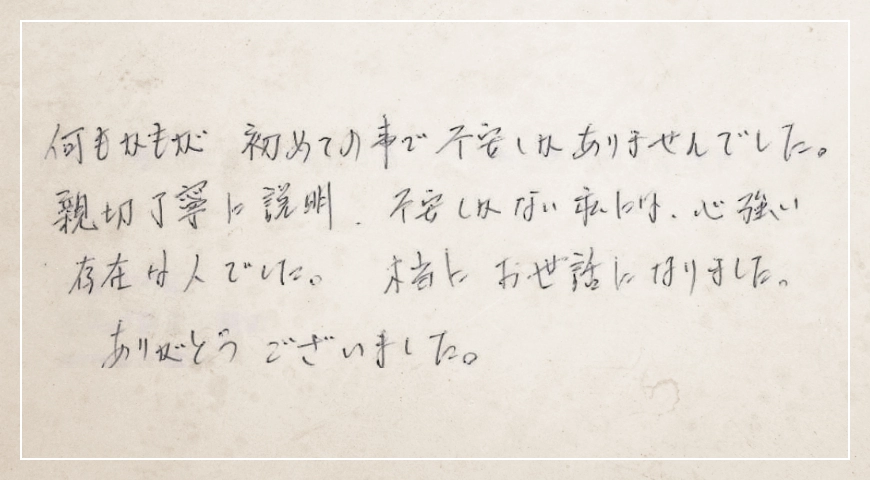 何もかもが 初めての事で不安しかありませんでした。
親切丁寧に説明、不安しかない私には、心強い
存在な人でした。 本当に お世話になりました。
ありがとう ございました。